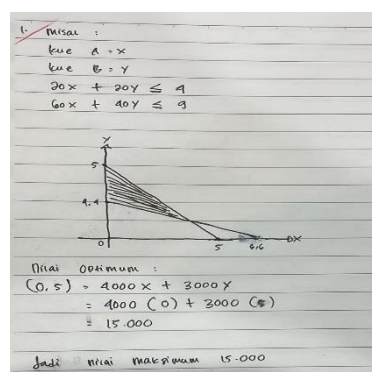 1. Misal :
kue A = X
kue B = Y
20x + 20y ≤ 4
60x + 40y ≤ 9
Y
5
4,4
0
5
6,6
X
Nilai Optimum :
(0,5) = 4000 X + 3000 Y
= 4000 (0) + 3000 (5)
= 15.000
Jadi nilai maksimum 15.000